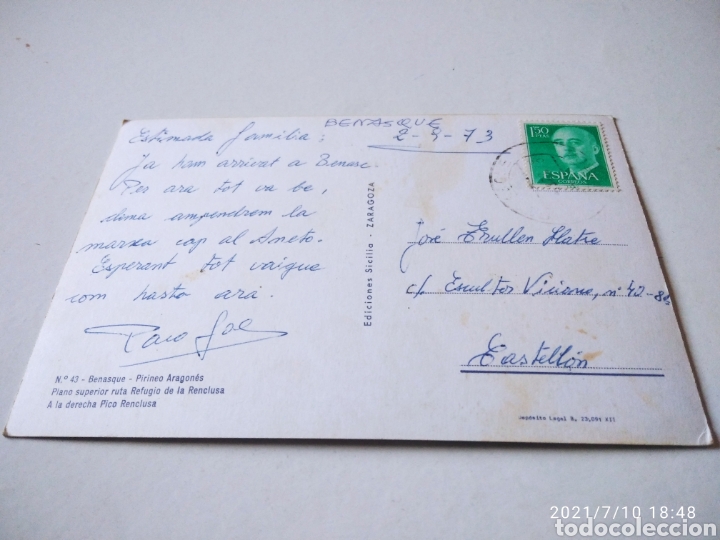 BENASQUE
2-4-73
Estimada familia:
Ja ham arrivat a Benasc.
Per ara tot va be,
dema ampendrem la
marxa cap al Aneto.
Esperant tot vaigue
com hasta ara.
Paco
Nº 43 - Benasque - Pirineo Aragonés
Plano superior ruta Refugio de la Renclusa
A la derecha Pico Renclusa
Ediciones Sicilia - ZARAGOZA
1'50
PTAS
ESPAÑA
CORREOS
José
c/ Escultor Viciano, nº 42-8º
Castellón
Depósito Legal B. XII
2021/7/10 18:48
todocoleccion